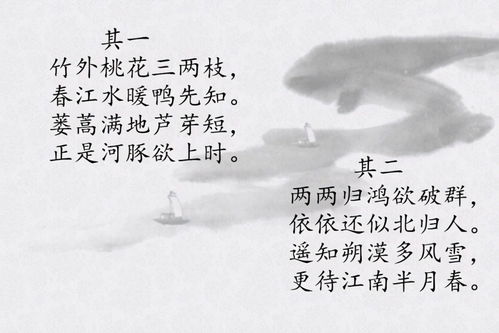 其一
竹外桃花三两枝，
春江水暖鸭先知。
蒌蒿满地芦芽短，
正是河豚欲上时。
其二
两两归鸿欲破群，
依依还似北归人。
遥知朔漠多风雪，
更待江南半月春。